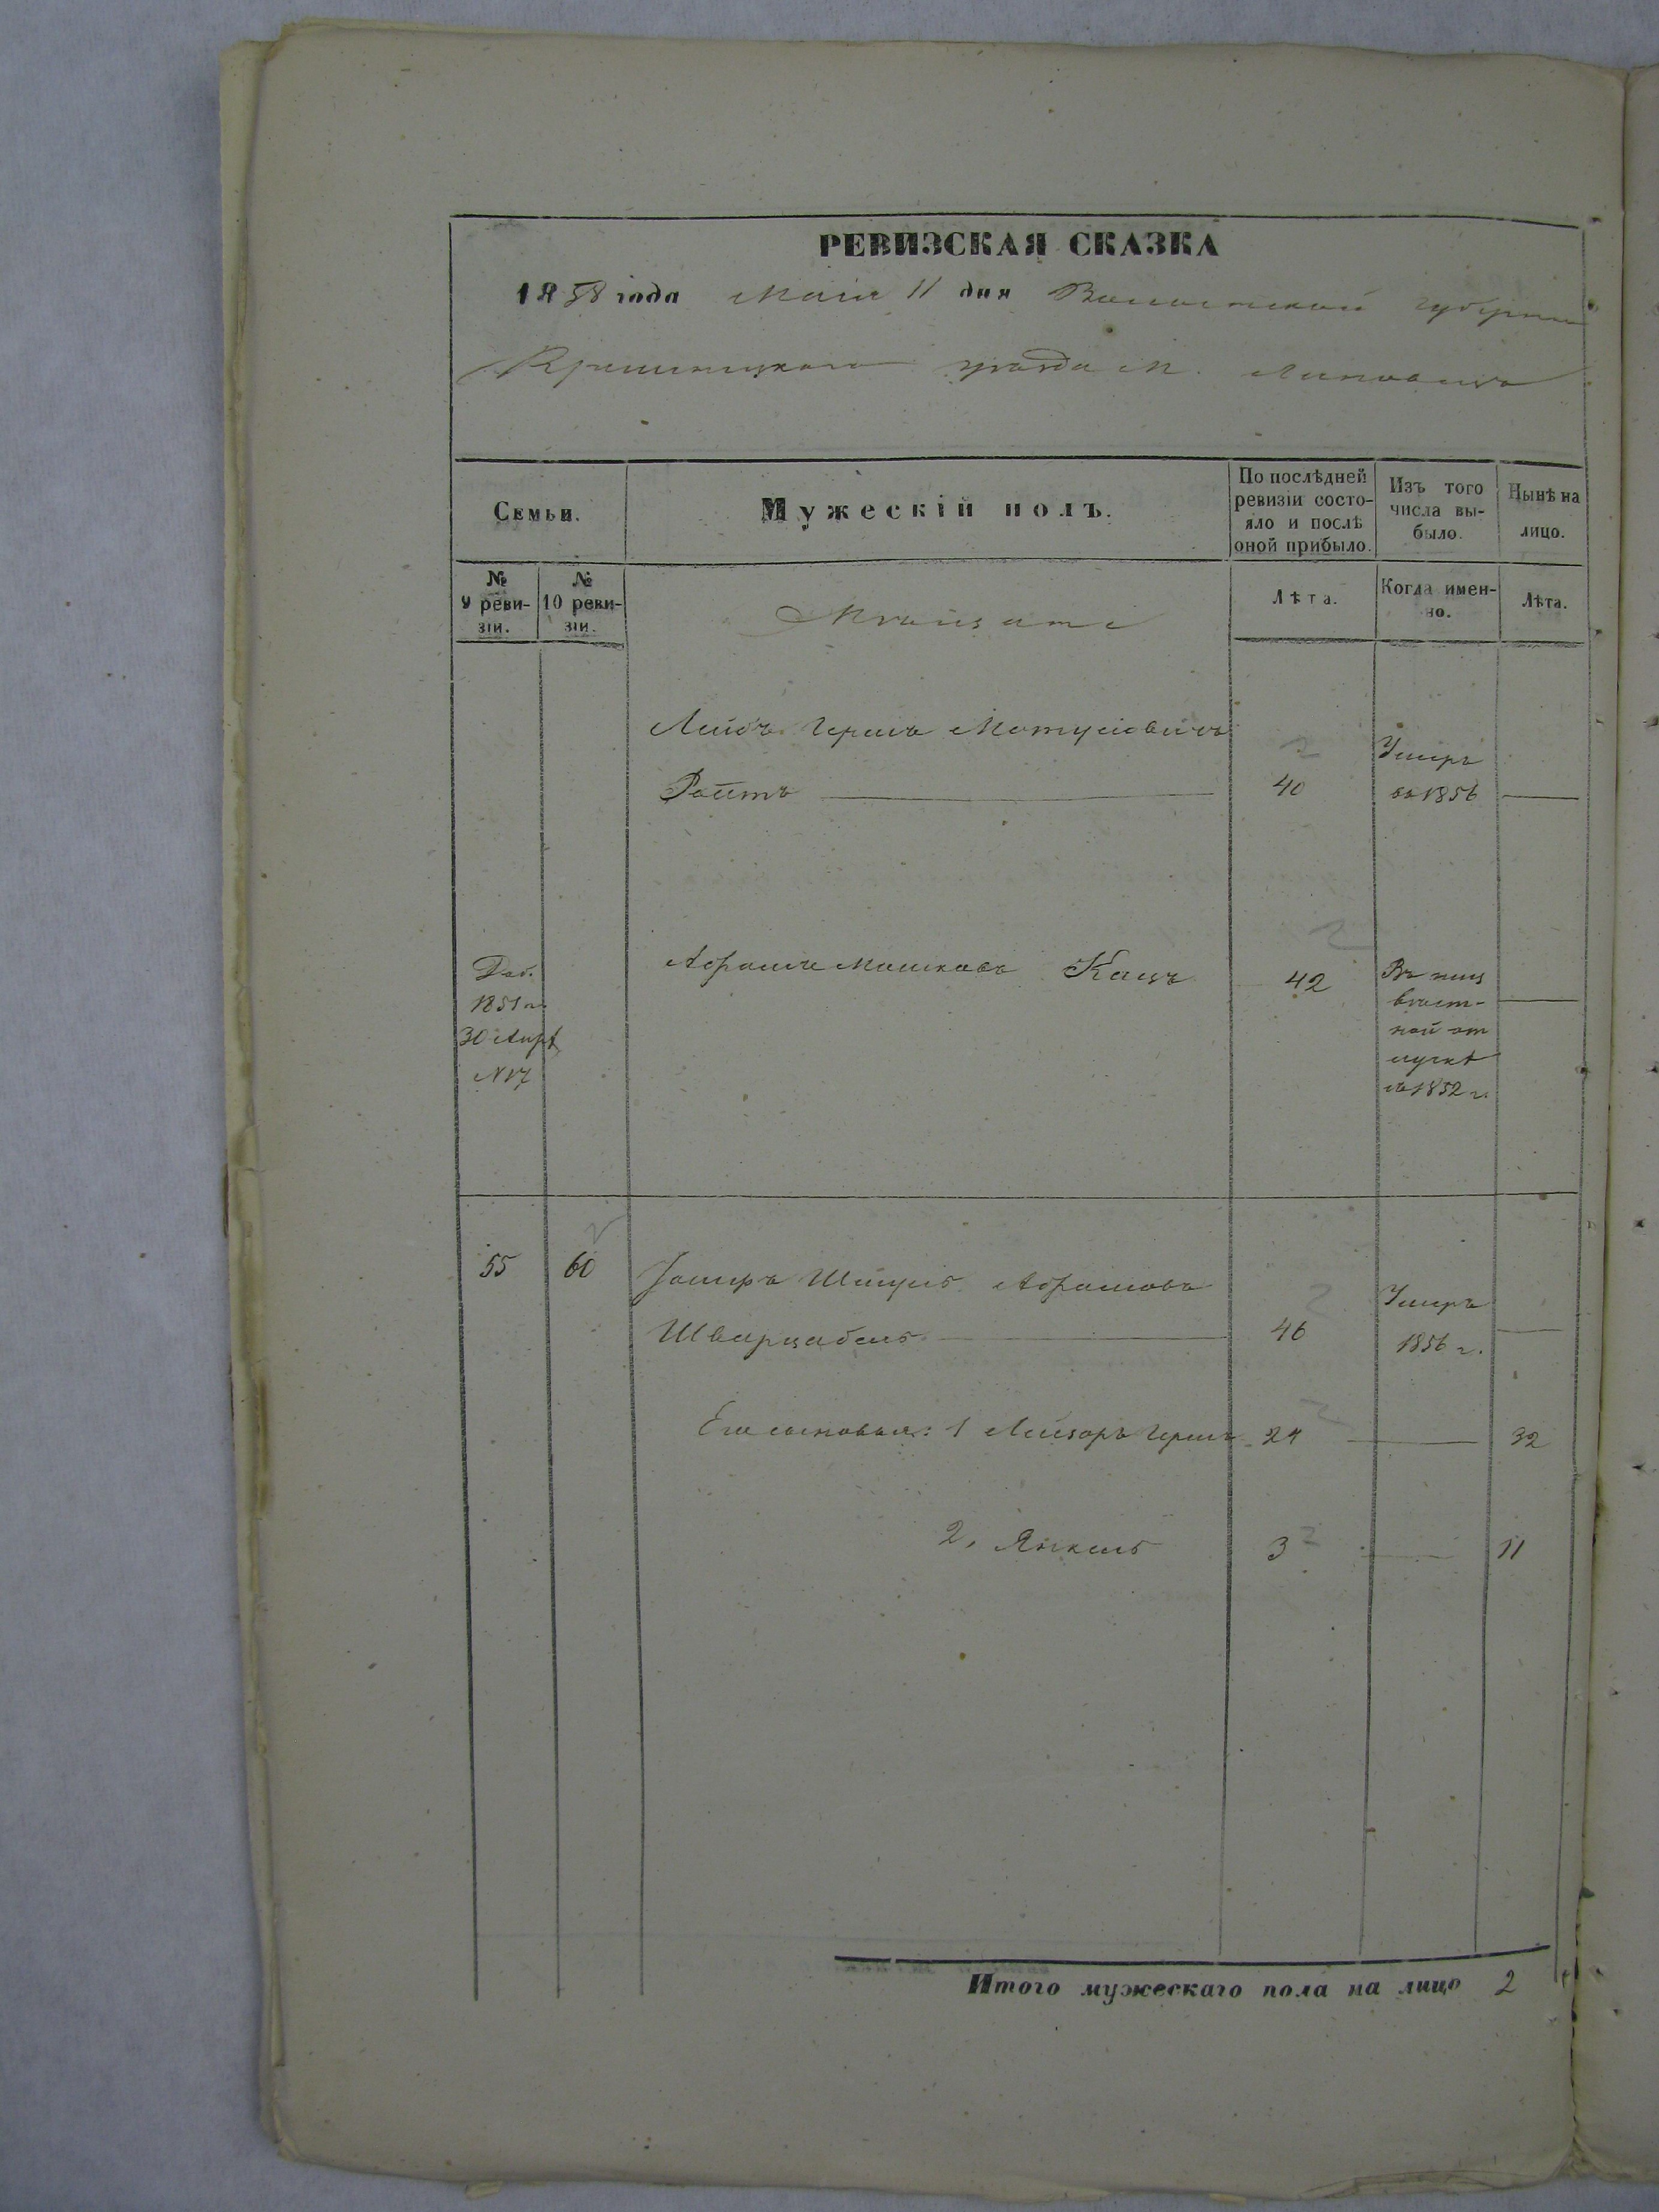 РЕВИЗСКАЯ СКАЗКА
1858 года Маія 11 дня Волынской губерніи
Кременецкаго уезда М.
Семьи.
Мужескій полъ.
По послѣдней ревизіи состо-
яло и послѣ
оной прибыло.
Изъ того
числа вы-
было.
Нынѣ на
лицо.
№
9 реви-
зіи.
№
10 реви-
зіи.
Мѣщане
Лѣта.
Когда имен-
но.
Лѣта.
Лейбъ Гершъ Мотусіовичъ
Ройтъ 40 Умеръ
въ 1856
Доб.
1851 г.
30 Апрѣ
№ 17
Абрамъ Мошковъ Кацъ 42
Въ неиз
вѣст-
ной от
лучкѣ
съ 1852 г.
55 60 Іосифъ Шмуль Абрамовъ
Шварцабель 46 Умеръ
1856 г.
Его сыновья: 1 Лейзоръ Гершъ 24 32
2, Янкель 3 11
Итого мужескаго пола на лицо 2